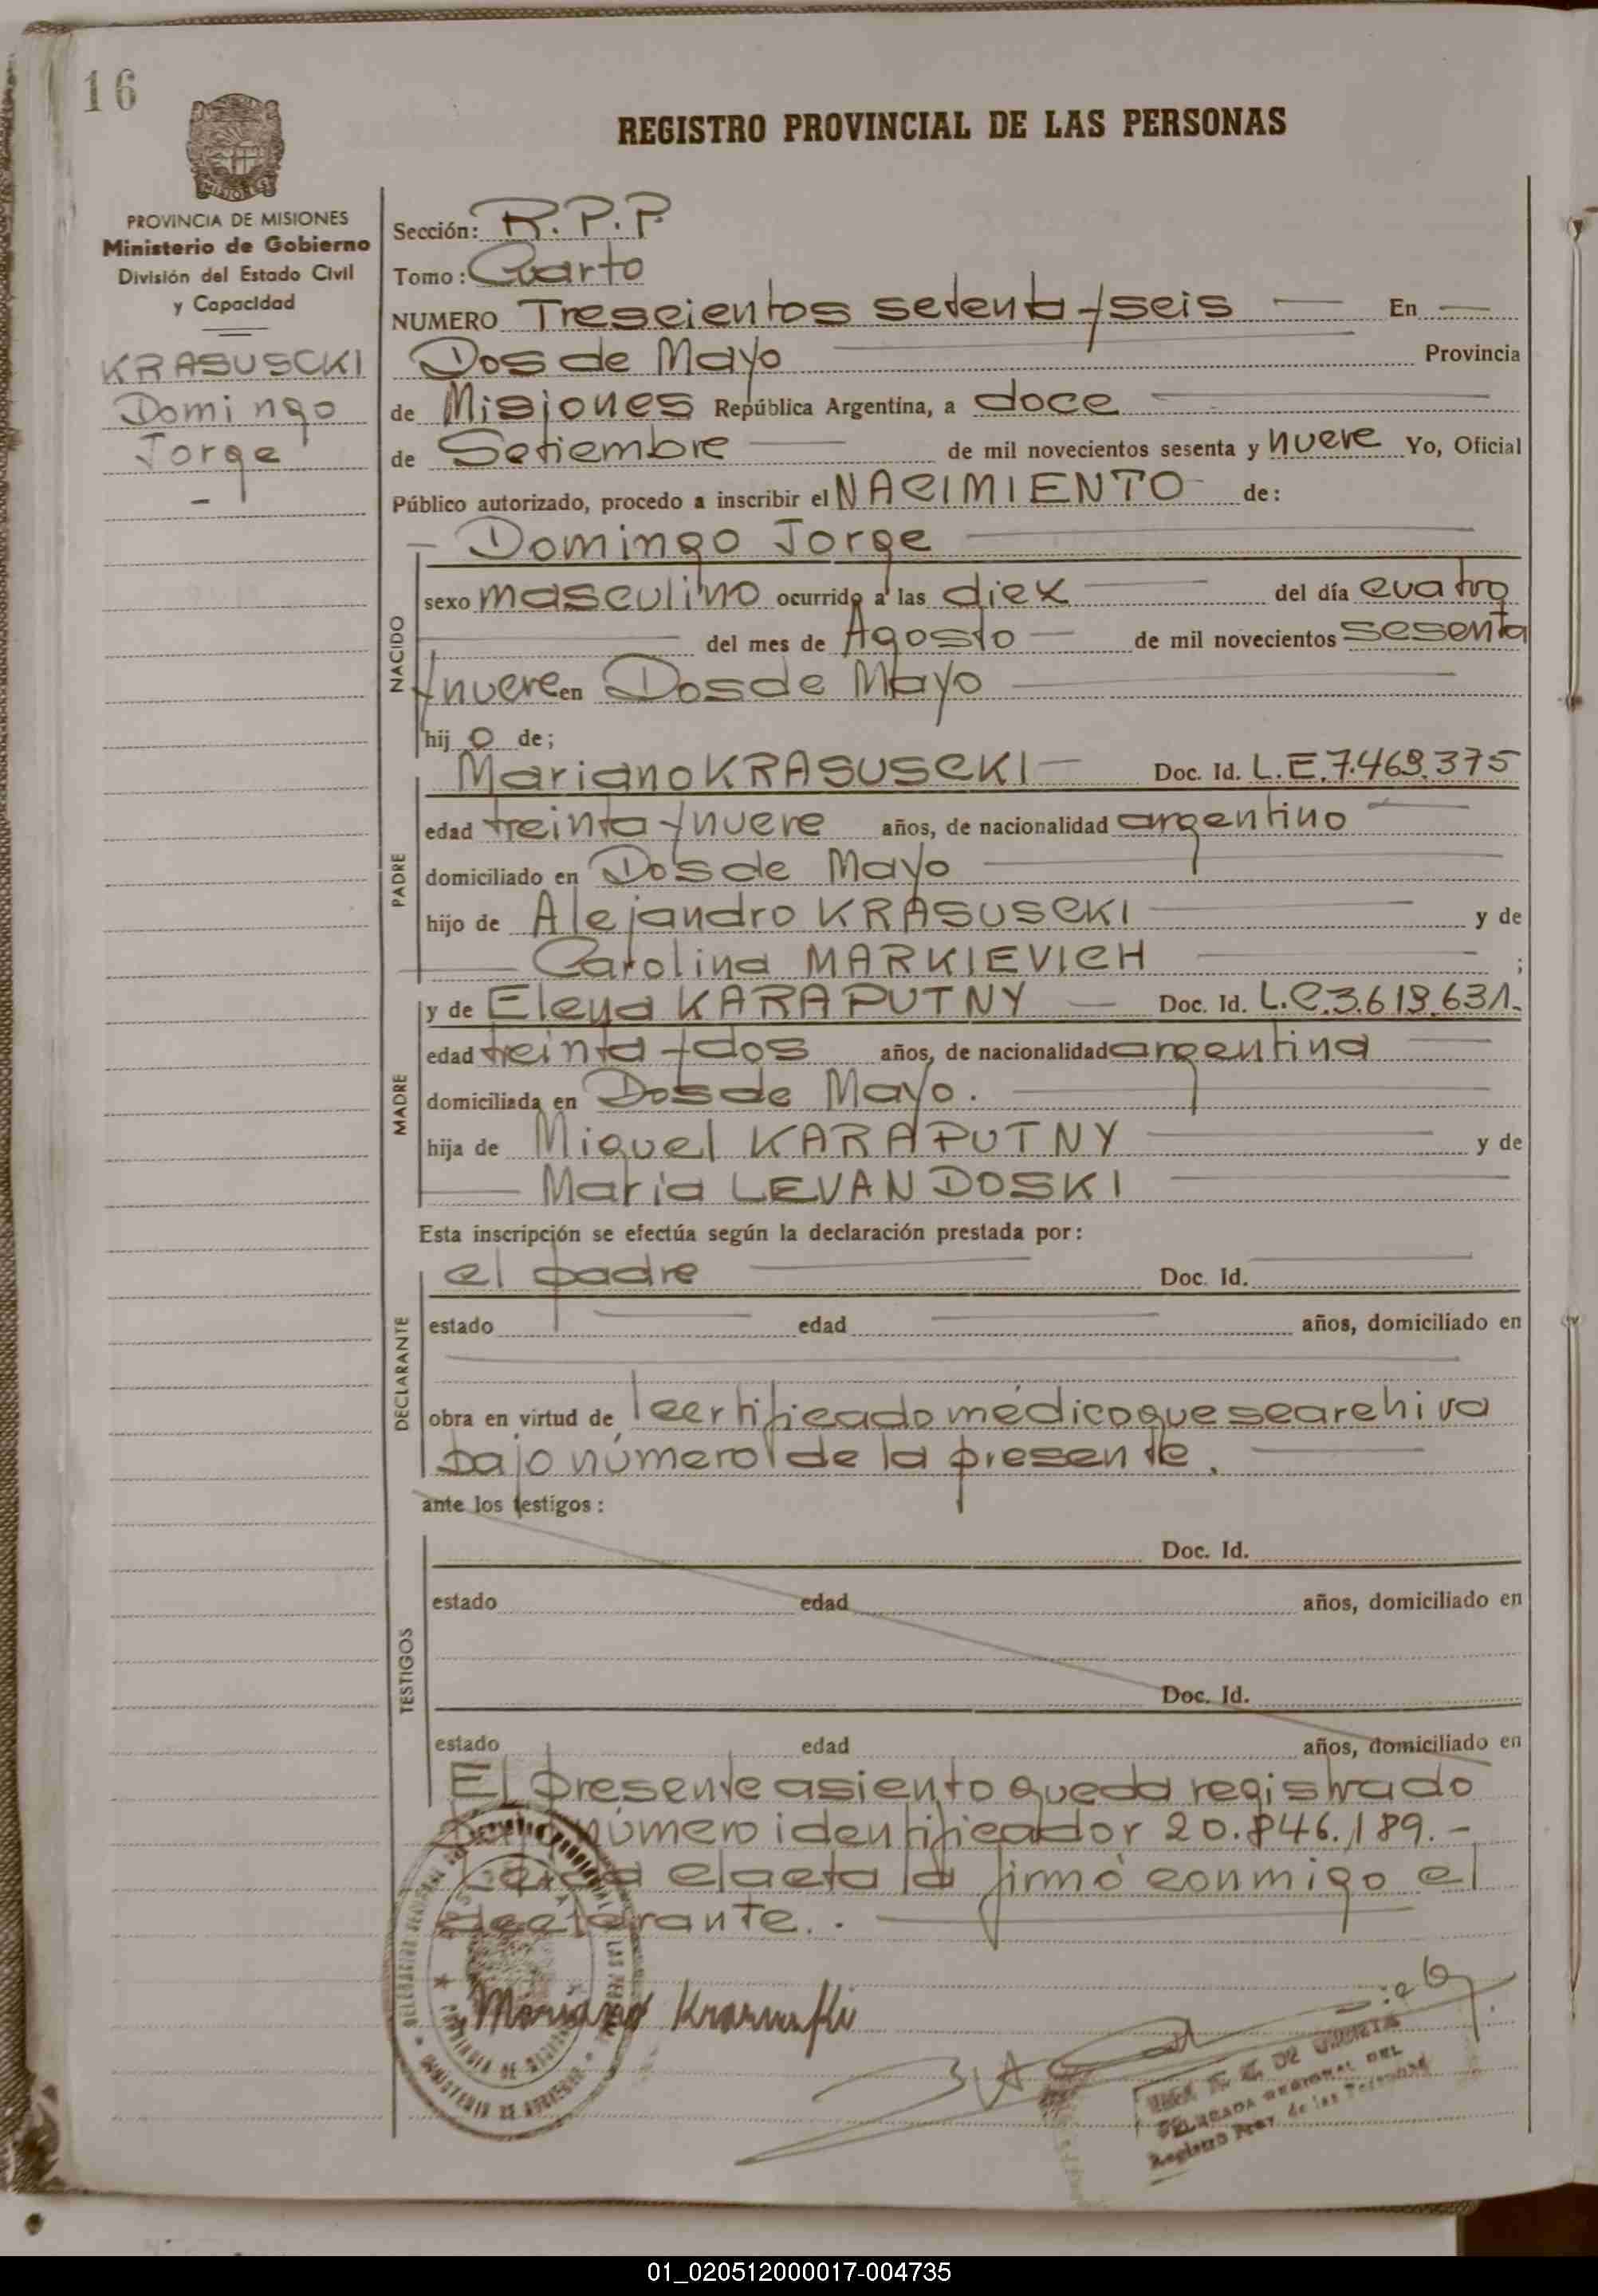 16
REGISTRO PROVINCIAL DE LAS PERSONAS
MISIONES
PROVINCIA DE MISIONES
Ministerio de Gobierno
División del Estado Civil
y Capacidad
KRASUSCKI
Domingo
Jorge
Sección: R.P.P.
Tomo: Cuarto
NUMERO Trescientos setenta y seis — En —
Dos de Mayo Provincia
de Misiones República Argentina, a doce
de Setiembre de mil novecientos sesenta y nueve Yo, Oficial
Público autorizado, procedo a inscribir el NACIMIENTO de:
Domingo Jorge
NACIDO
sexo masculino ocurrido a las diez del día cuatro
del mes de Agosto de mil novecientos sesenta
y nueve en Dos de Mayo
hij o de;
PADRE
Mariano KRASUSCKI — Doc. Id. L.E.7.469.375
edad treinta y nueve años, de nacionalidad argentino
domiciliado en Dos de Mayo
hijo de Alejandro KRASUSCKI y de
Carolina MARKIEVICH ;
MADRE
y de Elena KARAPUTNY — Doc. Id. L.C.3.619.631.
edad treinta y dos años, de nacionalidad argentina
domiciliada en Dos de Mayo.
hija de Miguel KARAPUTNY y de
Maria LEVANDOSKI
Esta inscripción se efectúa según la declaración prestada por:
DECLARANTE
el padre Doc. Id.
estado edad años, domiciliado en
obra en virtud de certificado médico que se archiva
bajo número de la presente.
ante los testigos:
TESTIGOS
Doc. Id.
estado edad años, domiciliado en
Doc. Id.
estado edad años, domiciliado en
El presente asiento queda registrado
bajo número identificador 20.846.189.-
Leida el acta la firmó conmigo el
declarante..
Mariano Krasuski
DELEGADA REGIONAL DEL
Registro Prov. de las Personas
01_020512000017-004735